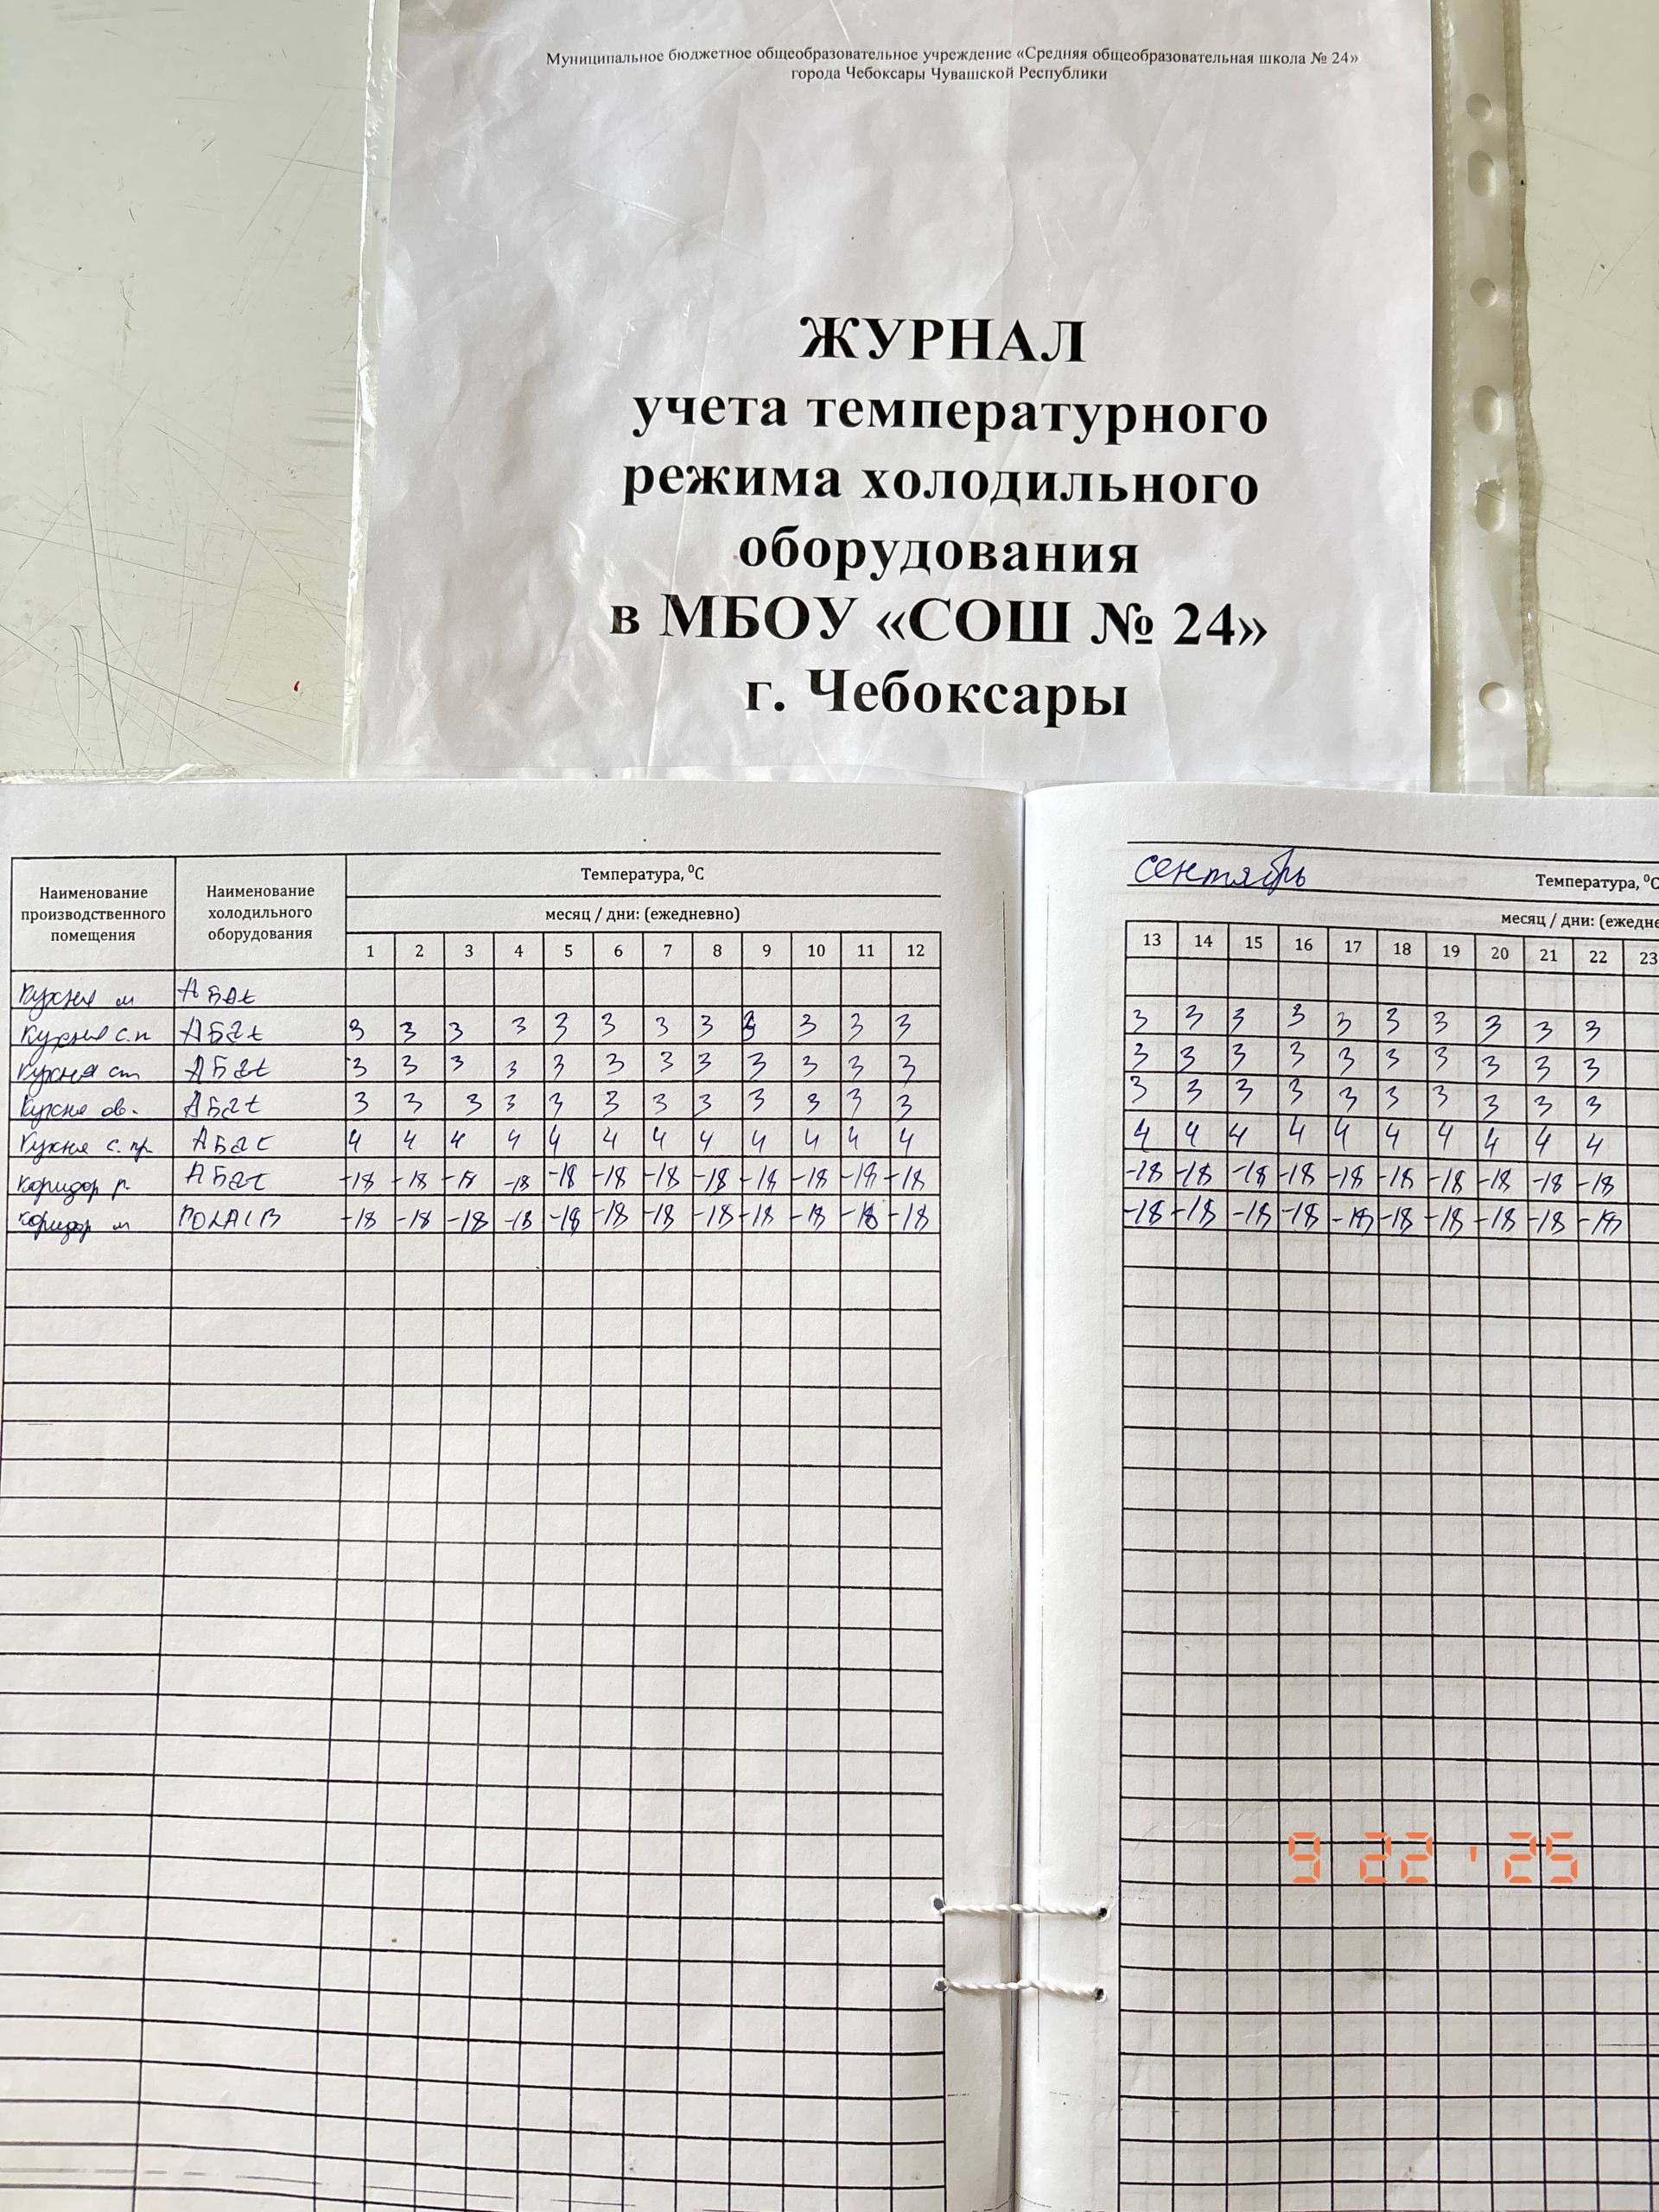 Муниципальное бюджетное общеобразовательное учреждение «Средняя общеобразовательная школа № 24»
города Чебоксары Чувашской Республики
ЖУРНАЛ
учета температурного
режима холодильного
оборудования
в МБОУ «СОШ № 24»
г. Чебоксары
Наименование производственного помещения
Наименование холодильного оборудования
Температура, ⁰С
месяц / дни: (ежедневно)
1 2 3 4 5 6 7 8 9 10 11 12
Кухня м АБат
Кухня с.п АБат 3 3 3 3 3 3 3 3 3 3 3 3
Кухня сm АБат 3 3 3 3 3 3 3 3 3 3 3 3
Кухня ов. АБат 3 3 3 3 3 3 3 3 3 3 3 3
Кухня с. пр. АБат 4 4 4 4 4 4 4 4 4 4 4 4
коридор р АБат -18 -18 -18 -18 -18 -18 -18 -18 -18 -18 -18 -18
коридор м POLAIR -18 -18 -18 -18 -18 -18 -18 -18 -18 -18 -18 -18
сентябрь
Температура, ⁰С
месяц / дни: (ежедне
13 14 15 16 17 18 19 20 21 22 23
3 3 3 3 3 3 3 3 3 3
3 3 3 3 3 3 3 3 3 3
3 3 3 3 3 3 3 3 3 3
4 4 4 4 4 4 4 4 4 4
-18 -18 -18 -18 -18 -18 -18 -18 -18 -18
-18 -18 -18 -18 -18 -18 -18 -18 -18 -18
9 22 ' 25